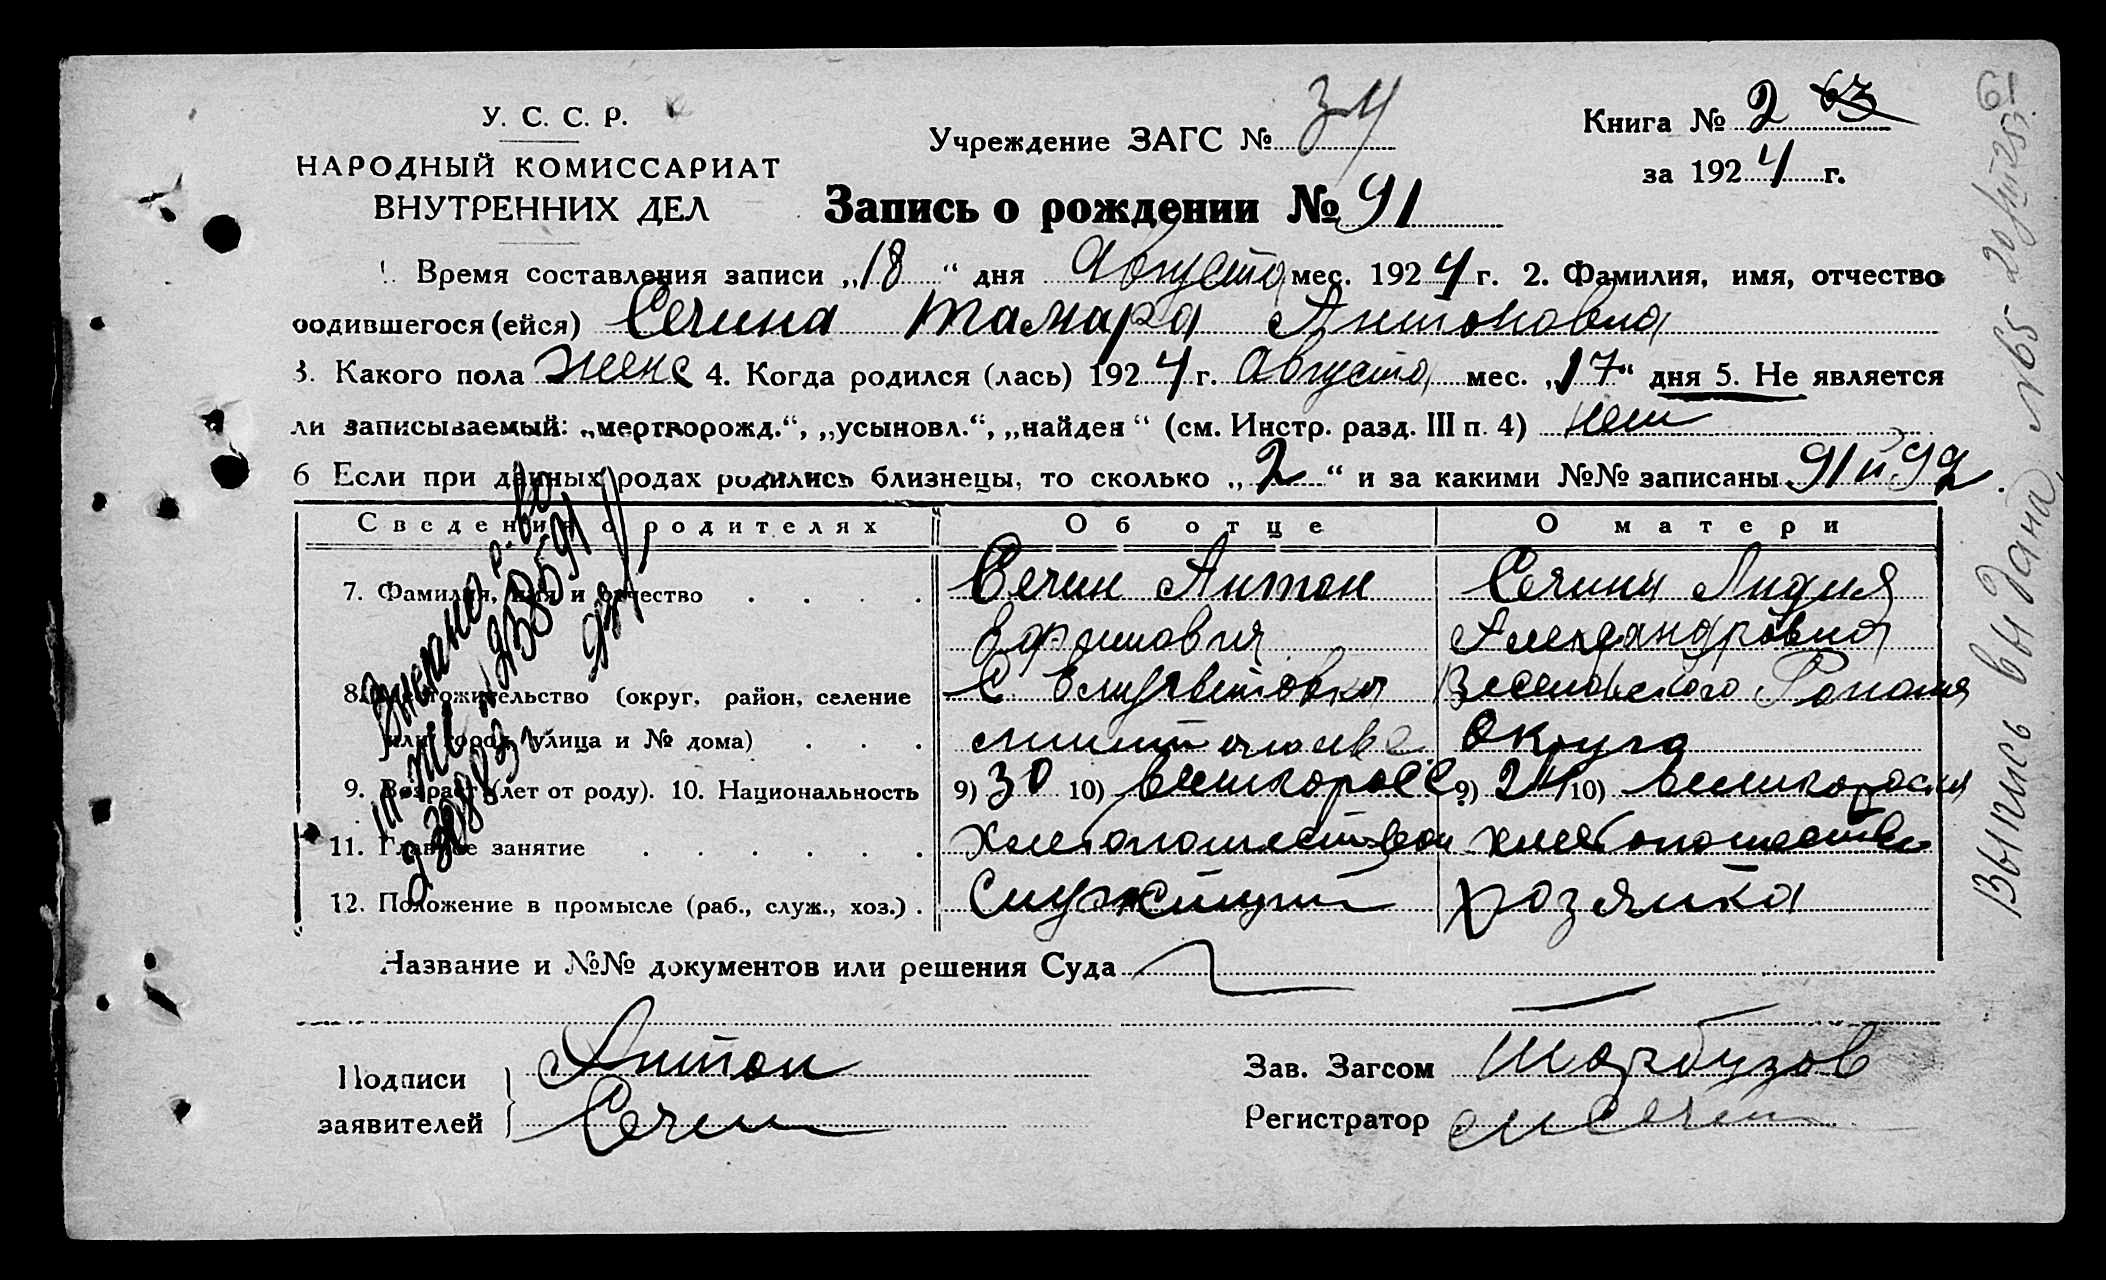 У. С. С. Р.
НАРОДНЫЙ КОМИССАРИАТ
ВНУТРЕННИХ ДЕЛ
Учреждение ЗАГС № 34
Книга № 2 63
за 1924 г.
61
Запись о рождении № 91
1. Время составления записи „18“ дня Августа мес. 1924 г. 2. Фамилия, имя, отчество
родившегося (ейся) Сечина Тамара Антоновна
3. Какого пола женс 4. Когда родился (лась) 1924 г. Августа мес. „17“ дня 5. Не является
ли записываемый: „мертворожд.“, „усыновл.“, „найден“ (см. Инстр. разд. III п. 4) нет
6 Если при данных родах родились близнецы, то сколько „2“ и за какими №№ записаны 91 и 92
Сведения о родителях Об отце О матери
7. Фамилия, имя и отчество . . . . Сечин Антон Сечина Лидия
Александровна
8. Местожительство (округ, район, селение С. Елизаветовка
или город, улица и № дома) . . . округа
9. Возраст (лет от роду). 10. Национальность 9) 30 10) великоросс 9) 24 10) великоросия
11. Главное занятие . . . . . . хлебопашество хлебопашество
12. Положение в промысле (раб., служ., хоз.) . хозяйка
Название и №№ документов или решения Суда
Подписи
заявителей
Антон
Сечин
Зав. Загсом Тарбузов
Регистратор Сечин
Выпись выдана №65